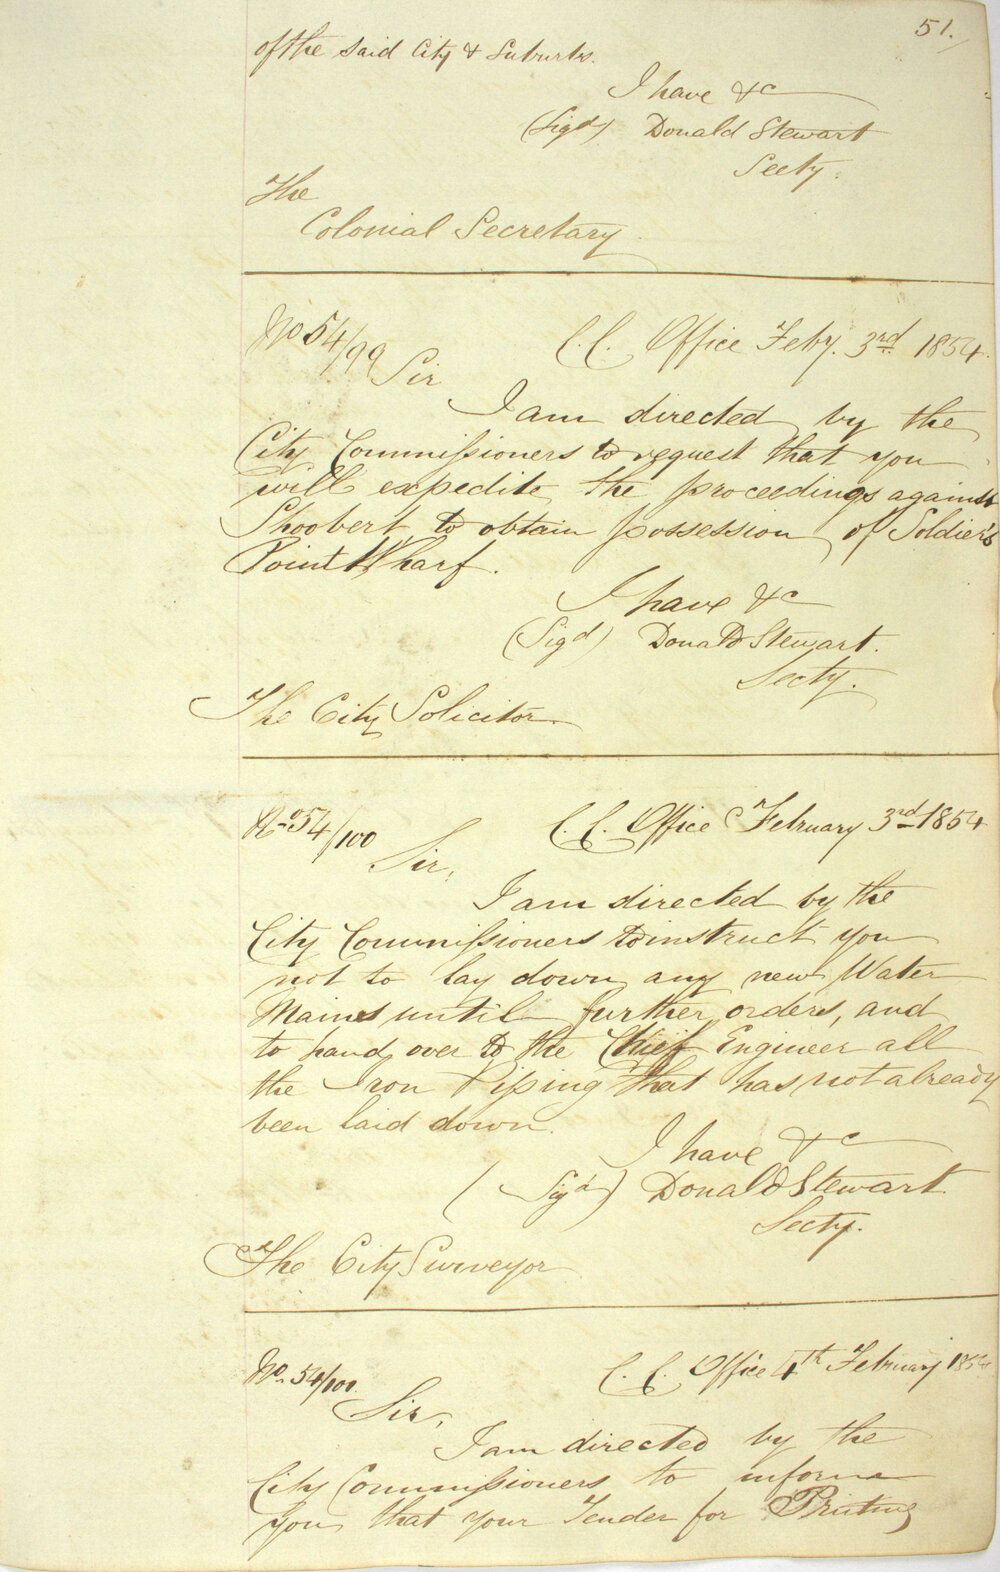 51.
of the said City & Suburbs.
I have &c
(Sigd) Donald Stewart
Secty.
The
Colonial Secretary
No 54/99 C. C. Office Feby. 3rd 1854.
Sir
I am directed by the
City Commissioners to request that you
will expedite the proceedings against
Shoobert to obtain possession of Soldier's
Point Wharf.
I have &c
(Sigd) Donald Stewart.
Secty.
The City Solicitor
No 54/100 C. C. Office February 3rd 1854
Sir,
I am directed by the
City Commissioners to instruct you
not to lay down any new Water
Mains until further orders, and
to hand over to the Chief Engineer all
the Iron Piping that has not already
been laid down.
I have &c
(Sigd) Donald Stewart
Secty.
The City Surveyor
No. 54/101 C. C. Office 4th February 1854
Sir,
I am directed by the
City Commissioners to inform
you that your Tender for Printing